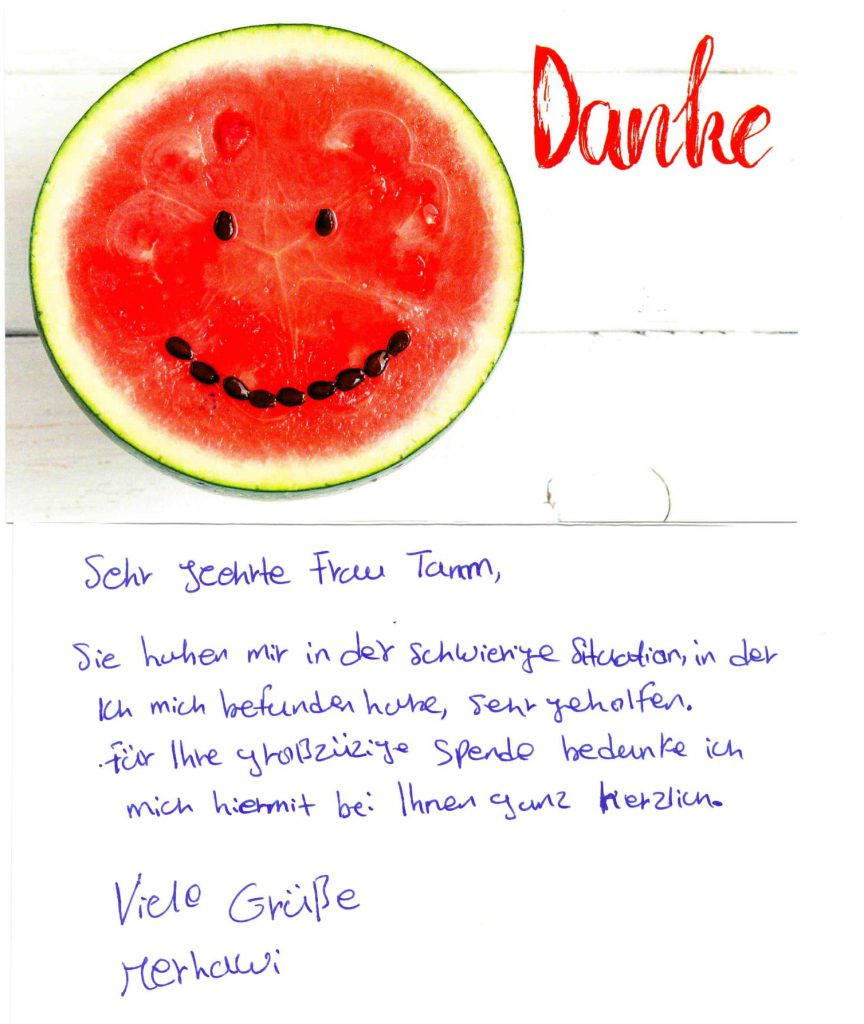 Danke
Sehr geehrte Frau Tamm,
Sie haben mir in der schwierige Situation, in der
Ich mich befunden habe, sehr geholfen.
für Ihre großzüzige Spende bedanke ich
mich hiermit bei Ihnen ganz herzlich.
Viele Grüße
Merhawi